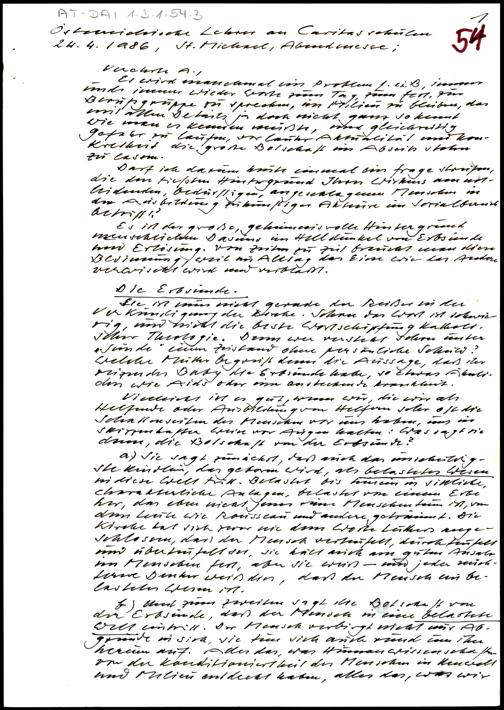 AT-DAI 1.3.1.54.3
1
54
Österreichische Lehrer an Caritasschulen
24.4.1986, St. Michael,
Verehrte A.,
Es wird manchmal ein Problem f. z.B., immer
und immer wieder Worte zum Tag, zum Fest, zur
Berufsgruppe zu sprechen, im Milieu zu bleiben, das
mit allen Details ja doch nicht ganz so kennt
wie man es kennen müsste, und gleichzeitig
Gefahr zu laufen, vor lauter Aktualität und Kon-
kretheit die große Botschaft im Abseits stehen
zu lassen.
Darf ich darum heute einmal eine Frage streifen,
die den tiefsten Hintergrund Ihres Wirkens am
leidenden, bedürftigen, angeschlagenen Menschen in
der Ausbildung zukünftiger Akteure im Sozialbereich
betrifft?
Es ist der große, geheimnisvolle Hintergrund
menschlichen Daseins im Helldunkel von Erbsünde
und Erlösung. Von Zeit zu Zeit braucht man diese
Besinnung, weil im Alltag das Eine wie das Andere
verwischt wird und verblaßt.
Die Erbsünde.
Sie ist nun nicht gerade der Reißer in der
Verkündigung der Kirche. Schon das Wort ist schwie-
rig, und nicht die beste Wortschöpfung kathol-
ischer Theologie. Denn wer versteht schon unter
"Sünde" einen Zustand ohne persönliche Schuld?
Welche Mutter begreift denn die Aussage, daß ihr
Baby die Erbsünde habe, so etwas Ähnli-
ches wie Aids oder eine ansteckende Krankheit.
Vielleicht ist es gut, wenn wir, die wir als
Helfende oder Ausbildung von Helfern sehr oft die
Schattenseiten des Menschen vor uns haben, uns in
Weise vor Augen halten: Was sagt sie
denn, die Botschaft von der Erbsünde?
a) Sie sagt zunächst, daß auch das unschuldig-
ste Kindlein, das geboren wird, als belastetes Wesen
in diese Welt tritt. Belastet bis hinein in sittliche,
charakterliche Anlagen, belastet von einem Erbe
her, das eben nicht jenes reine Menschentum ist, von
dem Leute wie Rousseau und andere geträumt. Die
Kirche hat sich zwar nie dem Worte Luthers ange-
schlossen, daß der Mensch verteufelt, durchteufelt
und überteufelt sei, sie hält auch am guten Ansatz
im Menschen fest, aber sie weiß – und jeder nüch-
terne Denker weiß dies, daß der Mensch ein be-
lastetes Wesen ist.
b) Und zum zweiten sagt die Botschaft von
der Erbsünde, daß der Mensch in eine belastete
Welt eintritt. Der Mensch verbirgt nicht nur Ab-
gründe in sich, sie tun sich auch rund um ihn
herum auf. Alles das, was Humanwissenschaften
von der Konditioniertheit des Menschen in Umwelt
und Milieu entdeckt haben, alles das, was wir